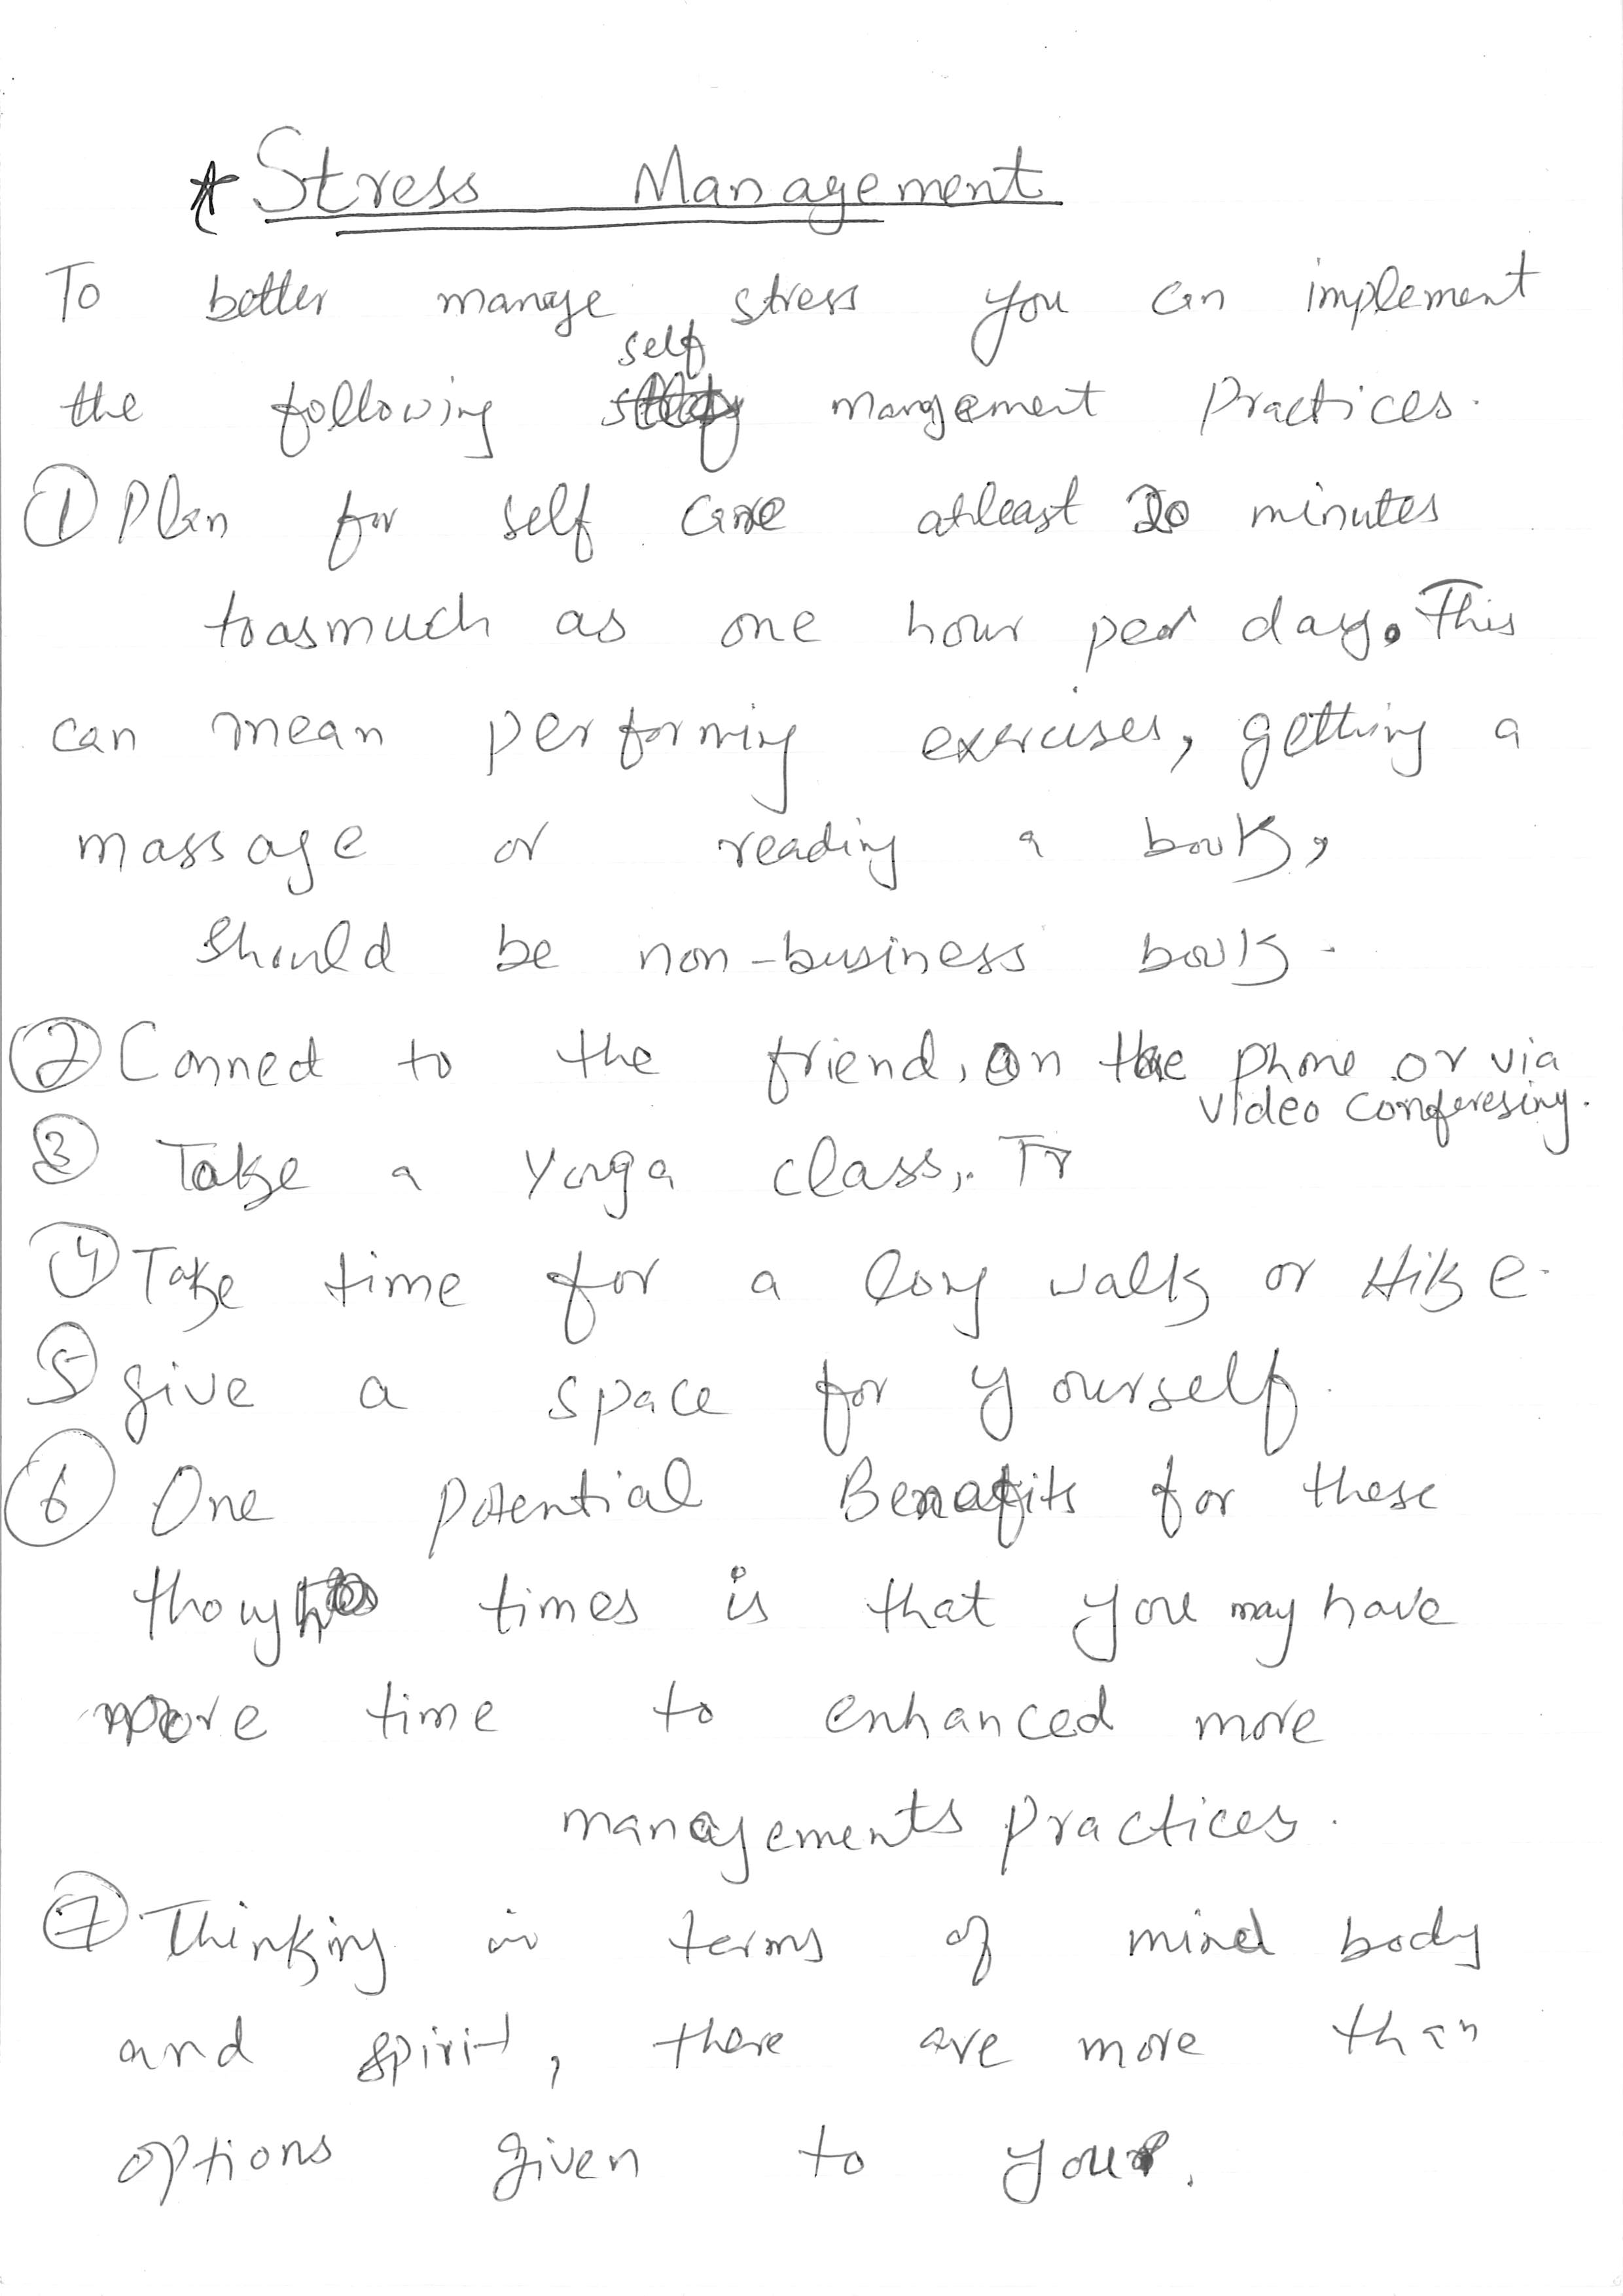 * Stress Management
To better manage stress you can implement
the following self mangement practices.
① Plan for self care atleast 20 minutes
toasmuch as one hour per day. This
can mean performing exercises, getting a
massage or reading a book,
Should be non-business book.
② Connect to the friend, on the phone or via
video conferesing.
③ Take a Yoga class,. Tr
④ Take time for a long walk or Hike.
⑤ give a space for yourself.
⑥ One potential Benefits for these
times is that you may have
more time to enhanced more
managements practices.
⑦ Thinking in terms of mind body
and spirit, there are more than
options given to you.